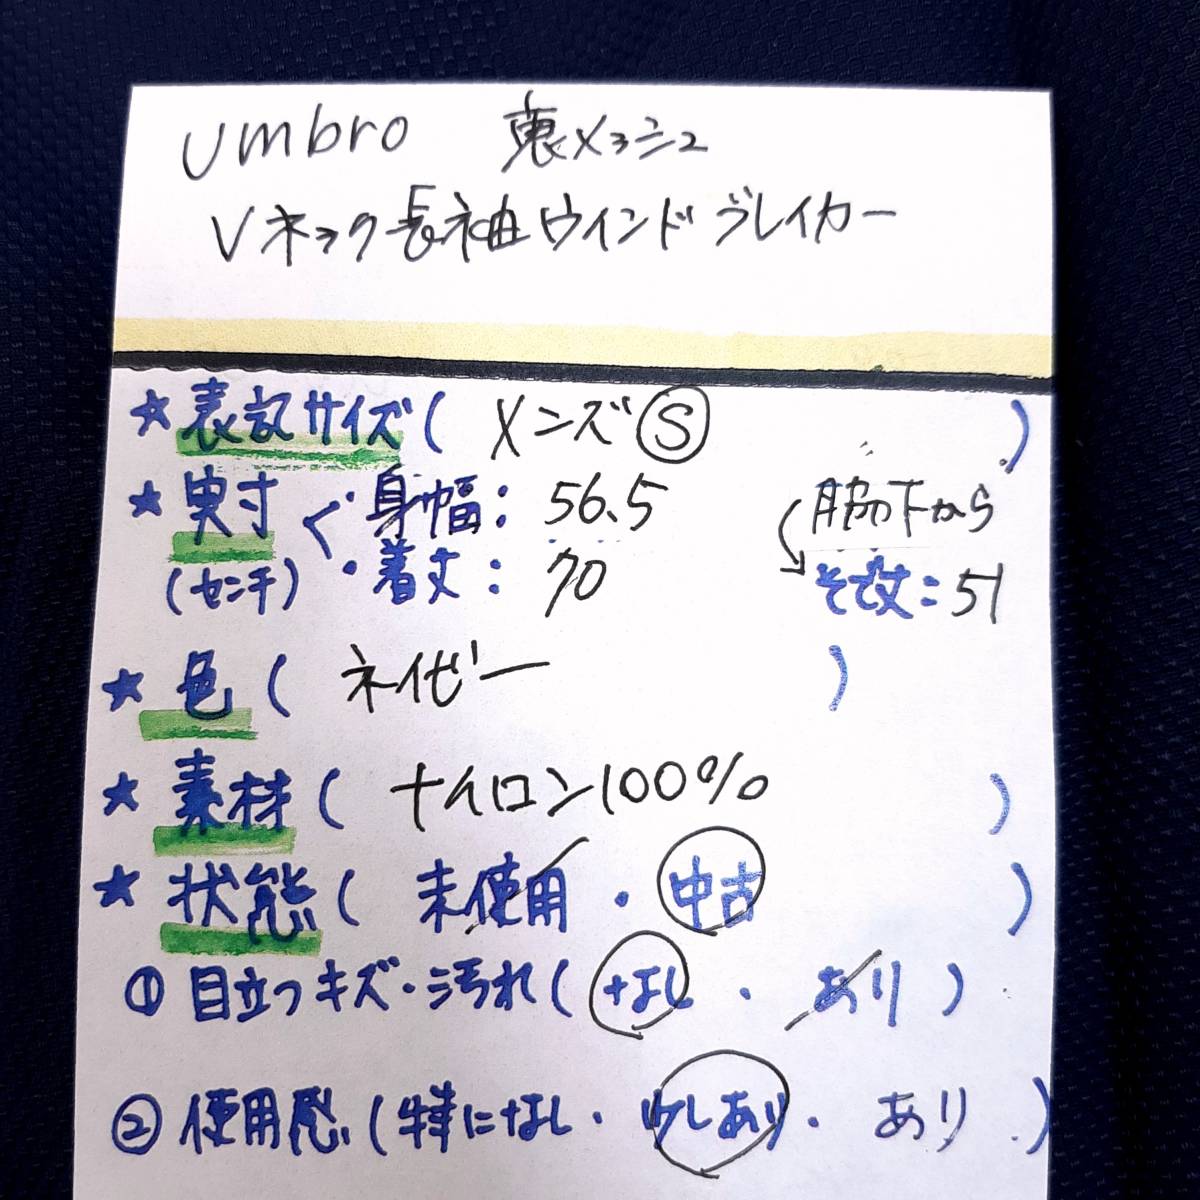 umbro 裏メッシュ
Vネック長袖ウインドブレイカー
★表記サイズ(メンズⓈ)
★実寸<・身幅:56.5 脇下から
(センチ)・着丈:70 そで丈:51
★色(ネイビー)
★素材(ナイロン100%)
★状態(未使用・中古)
①目立つキズ・汚れ(なし・あり)
②使用感(特になし・少しあり・あり)